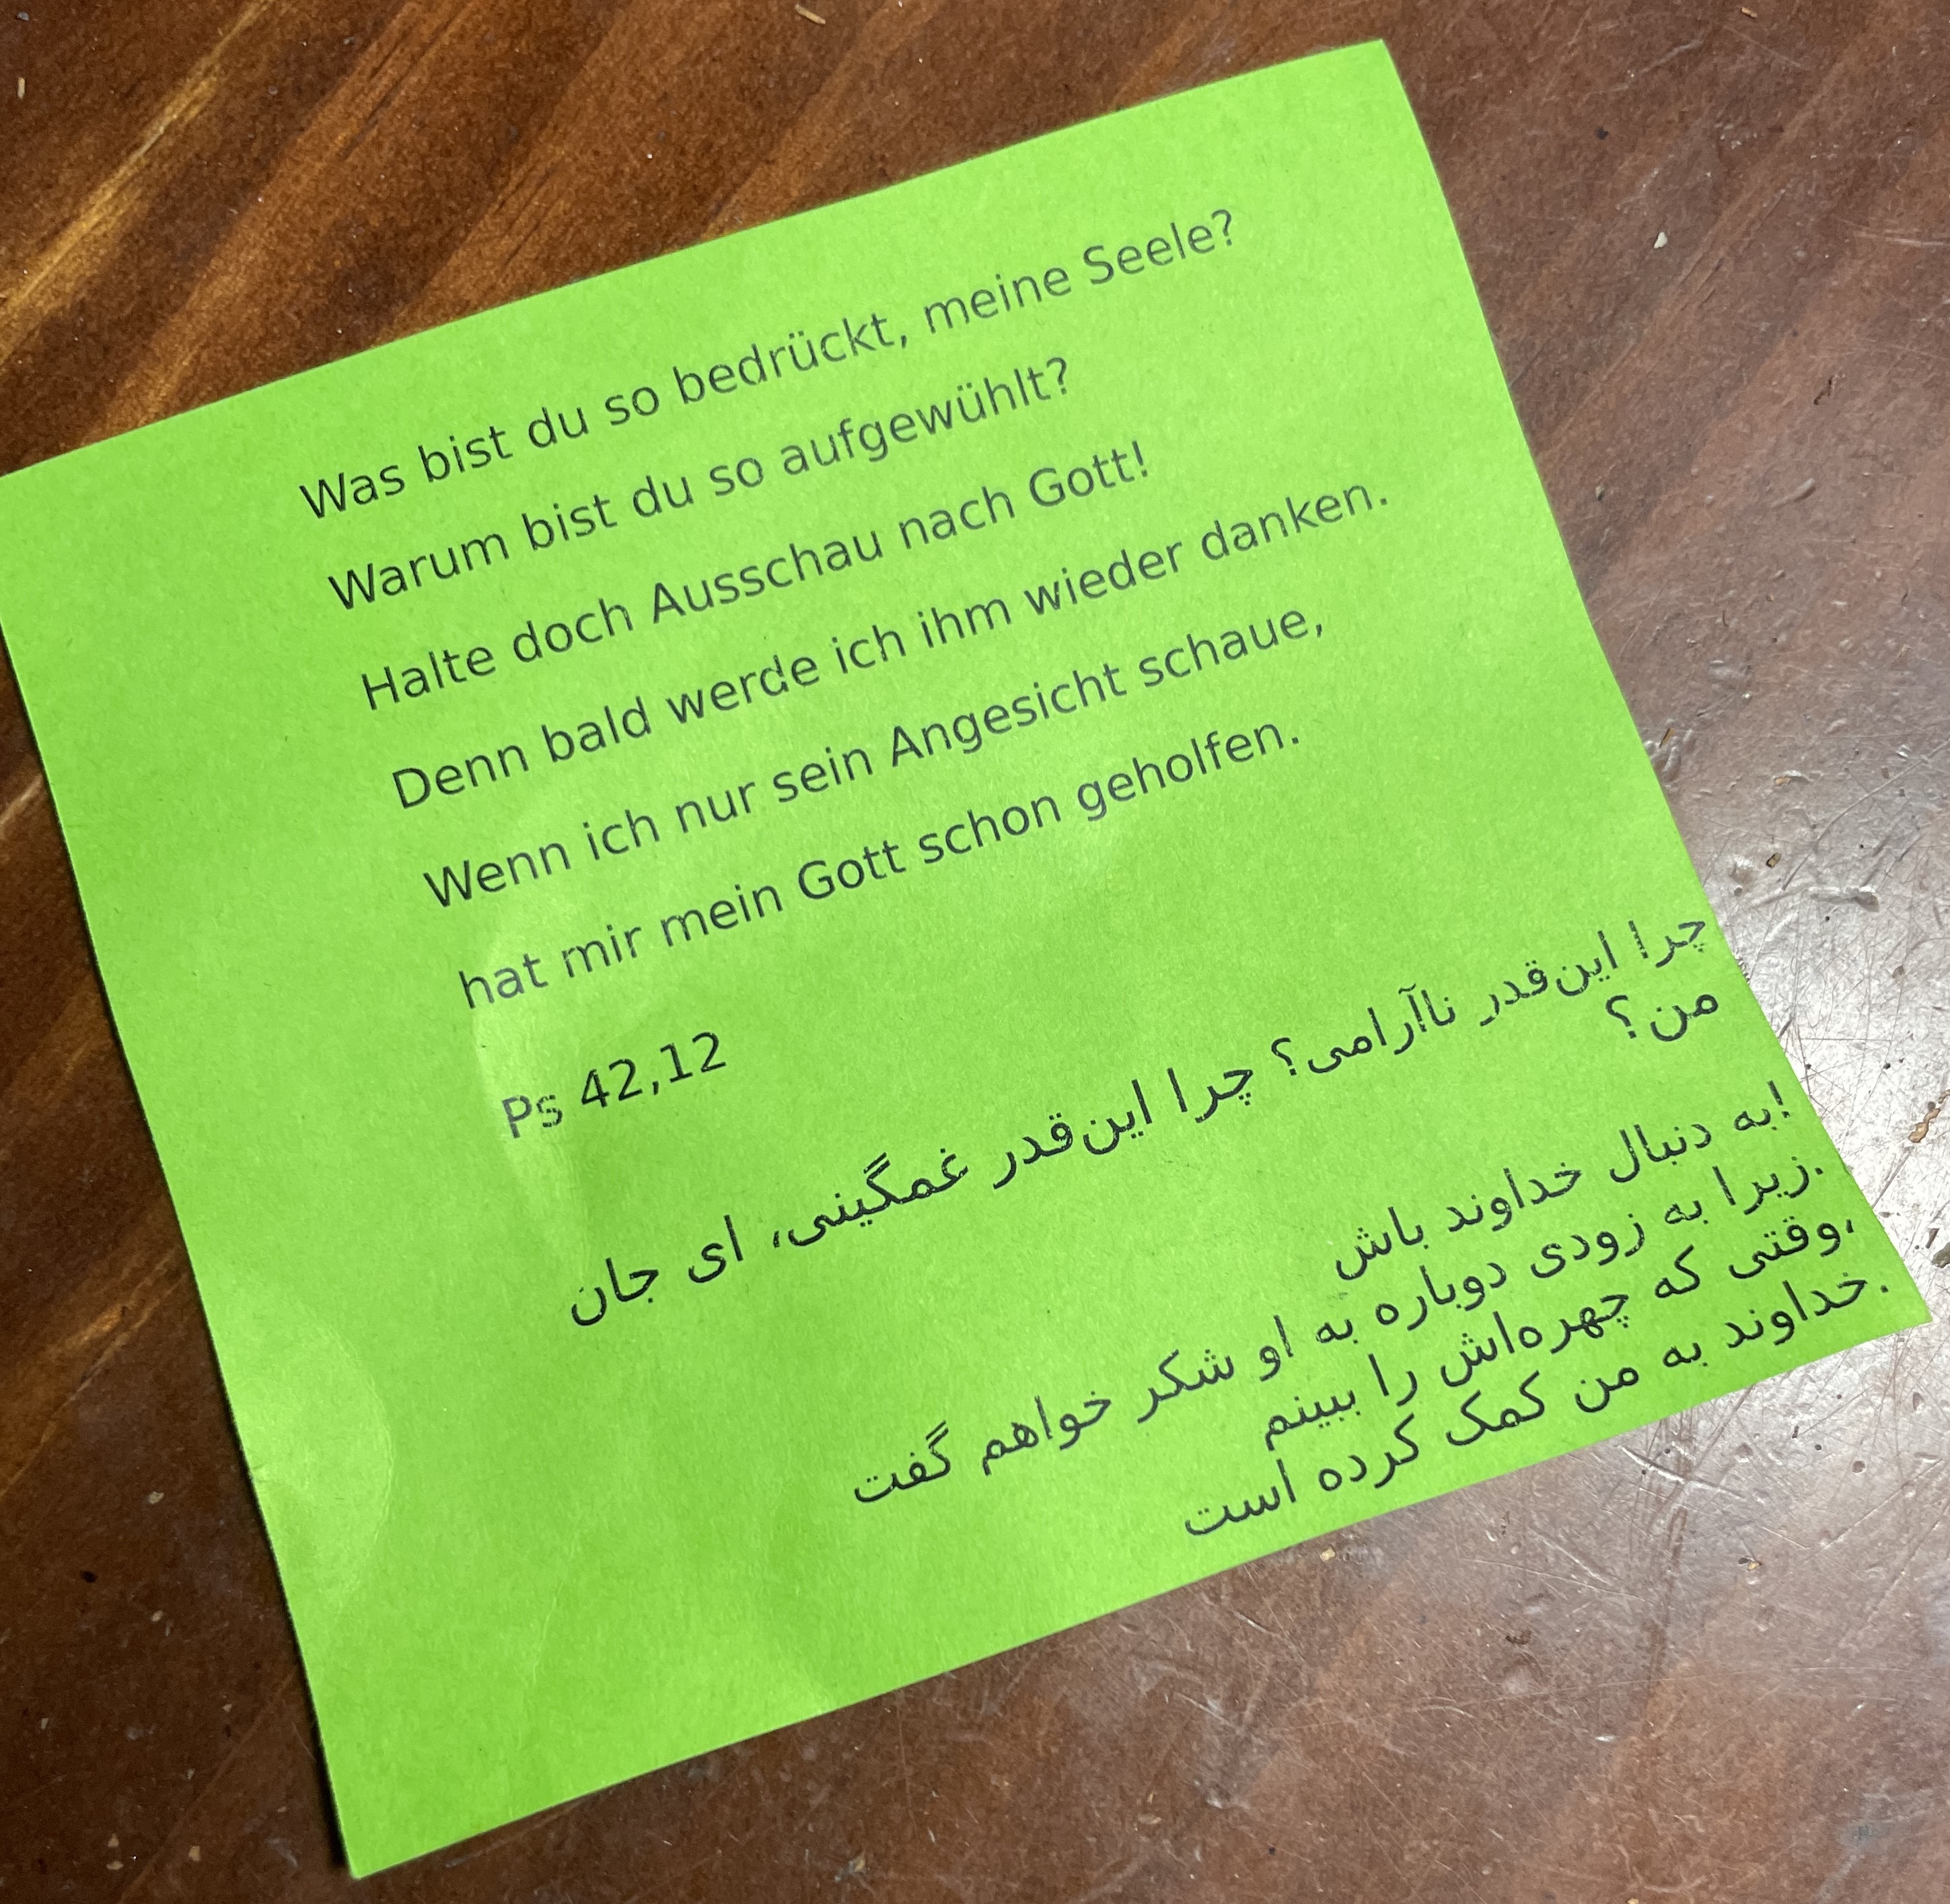 Was bist du so bedrückt, meine Seele?
Warum bist du so aufgewühlt?
Halte doch Ausschau nach Gott!
Denn bald werde ich ihm wieder danken.
Wenn ich nur sein Angesicht schaue,
hat mir mein Gott schon geholfen.
Ps 42,12
چرا این‌قدر ناآرامی؟ چرا این‌قدر غمگینی، ای جان
من؟
!به دنبال خداوند باش
.زیرا به زودی دوباره به او شکر خواهم گفت
،وقتی که چهره‌اش را ببینم
.خداوند به من کمک کرده است